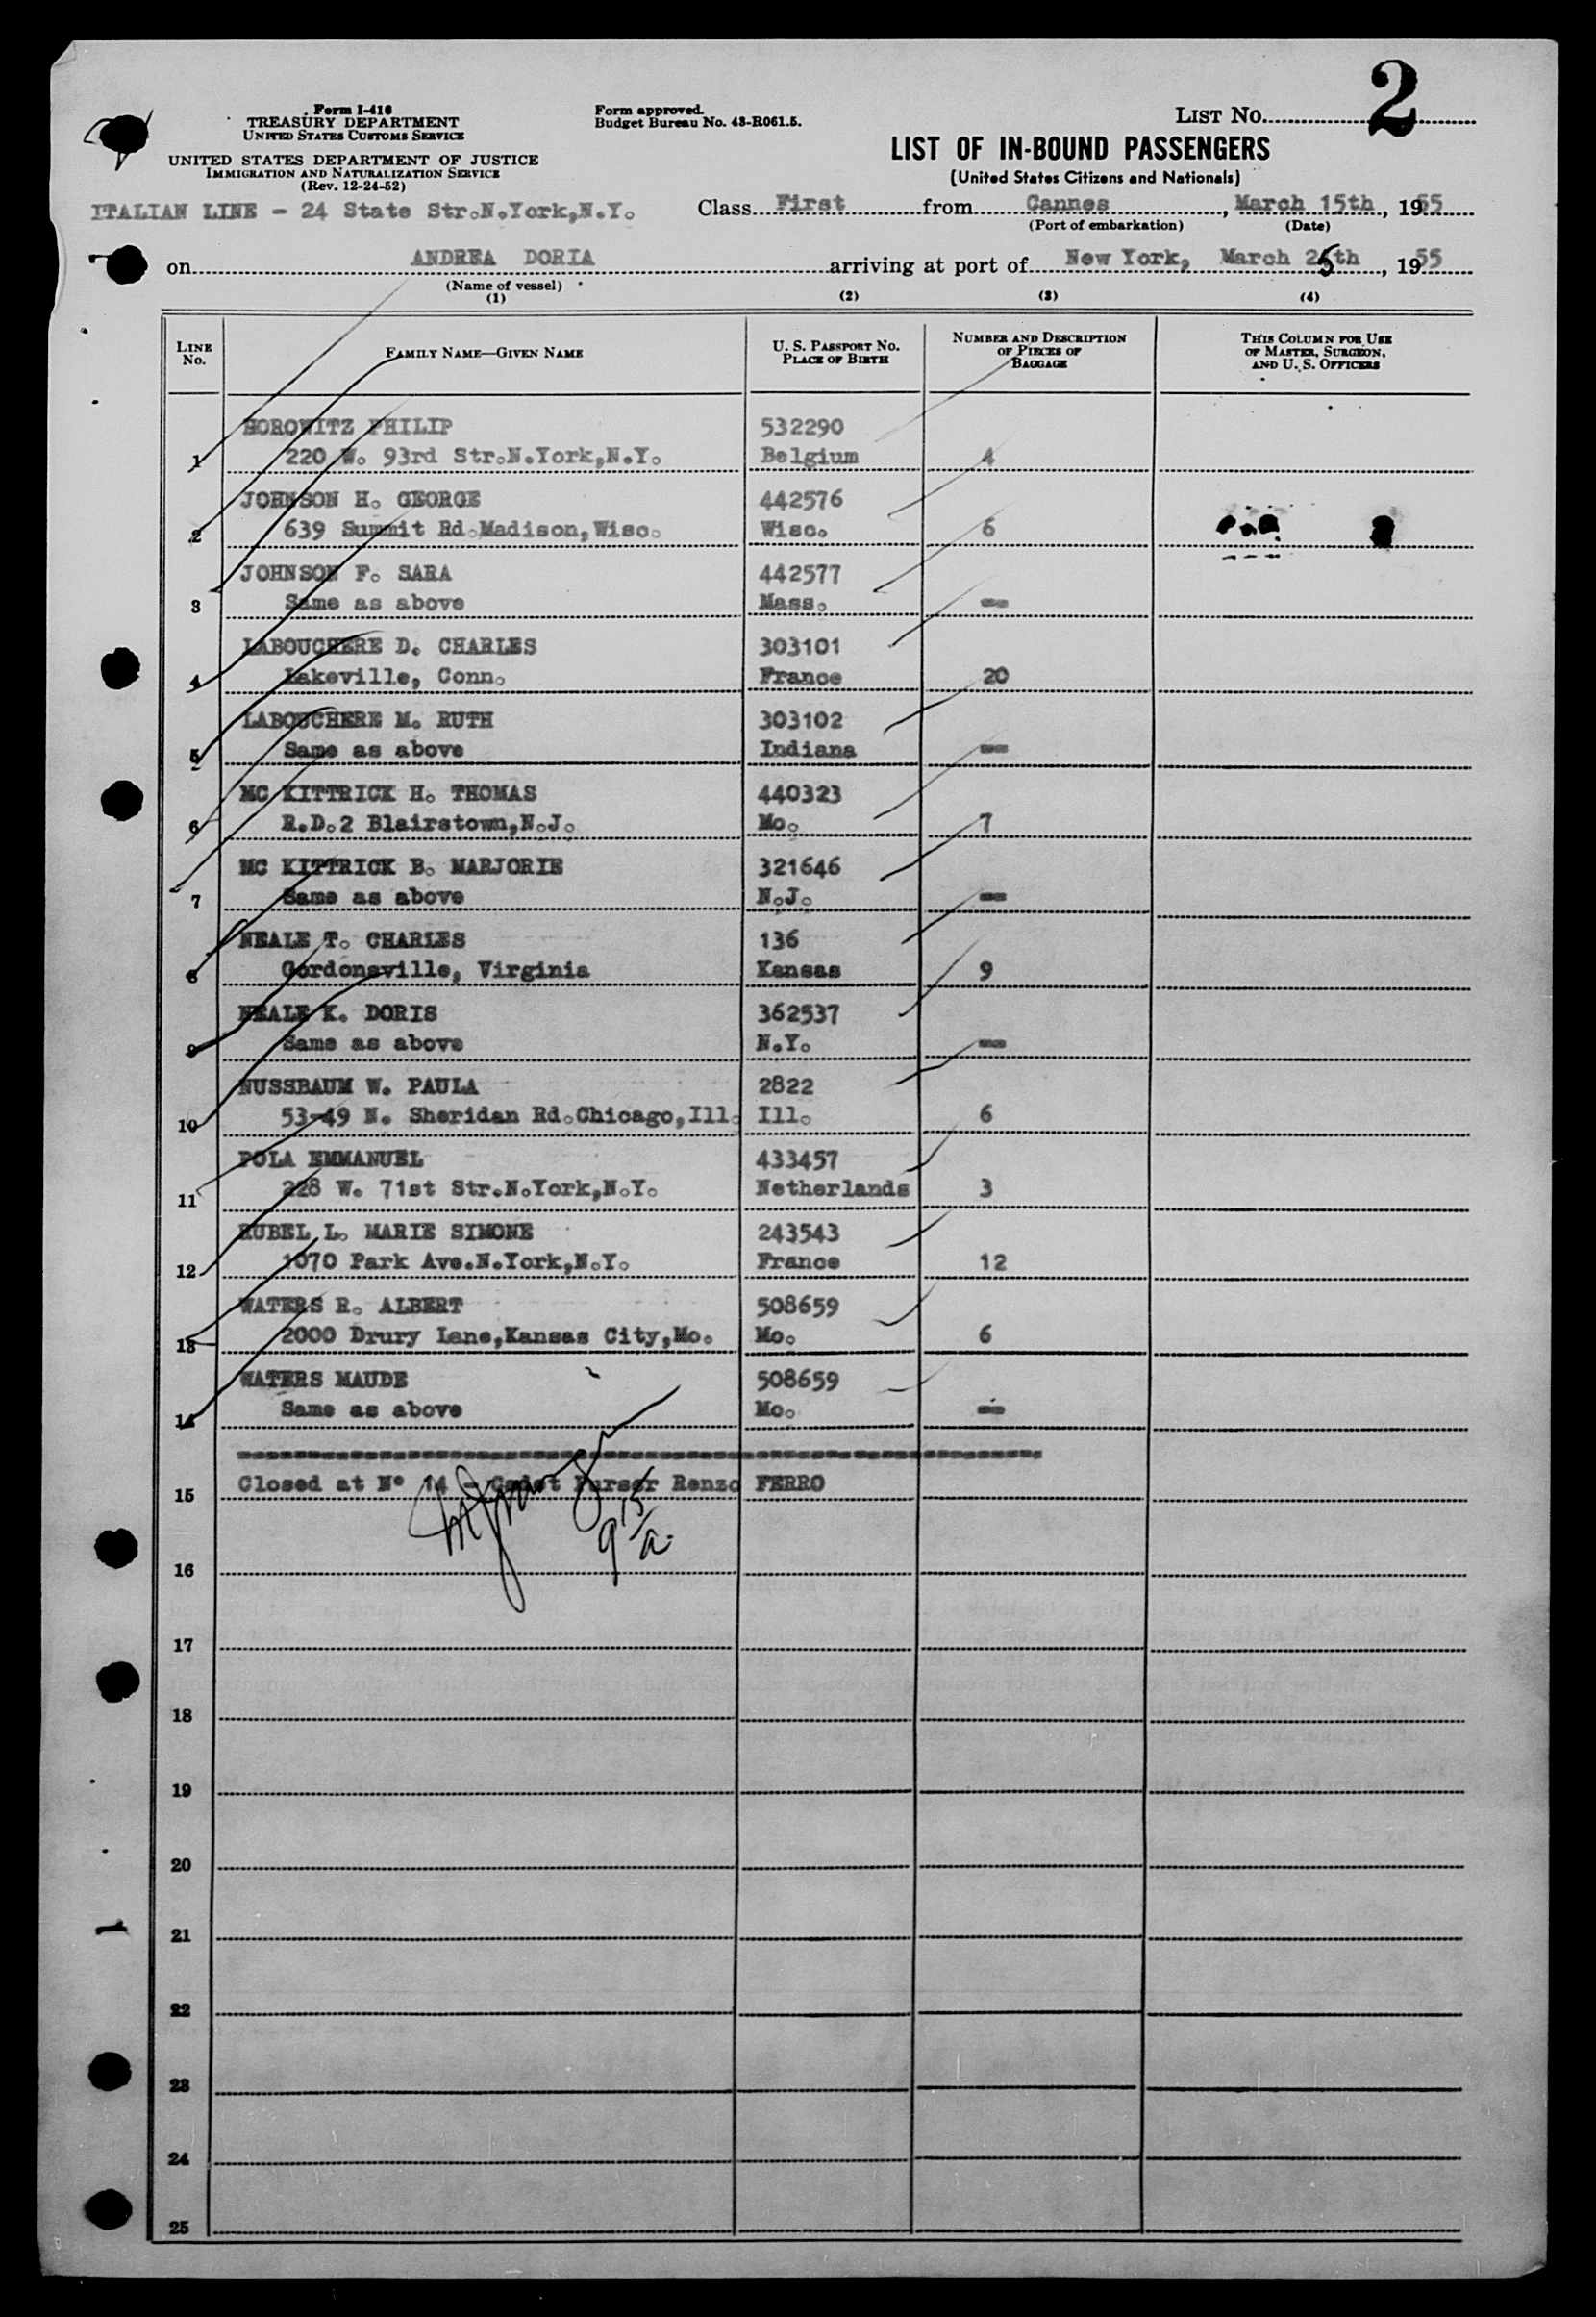 Form I-418
TREASURY DEPARTMENT
UNITED STATES CUSTOMS SERVICE
UNITED STATES DEPARTMENT OF JUSTICE
IMMIGRATION AND NATURALIZATION SERVICE
(Rev. 12-24-52)
Form approved.
Budget Bureau No. 43-R061.5.
LIST No. 2
LIST OF IN-BOUND PASSENGERS
(United States Citizens and Nationals)
ITALIAN LINE - 24 State Str.N.York,N.Y.
Class First from Cannes, March 15th, 1955
(Port of embarkation) (Date)
on ANDREA DORIA arriving at port of New York, March 25th, 1955
(Name of vessel)
(1) (2) (3) (4)
LINE No.
FAMILY NAME—GIVEN NAME
U. S. PASSPORT No.
PLACE OF BIRTH
NUMBER AND DESCRIPTION
OF PIECES OF
BAGGAGE
THIS COLUMN FOR USE
OF MASTER, SURGEON,
AND U. S. OFFICERS
HOROWITZ PHILIP 532290
1 220 W. 93rd Str.N.York,N.Y. Belgium 4
JOHNSON H. GEORGE 442576
2 639 Summit Rd.Madison,Wisc. Wisc. 6
JOHNSON F. SARA 442577
3 Same as above Mass. --
LABOUCHERE D. CHARLES 303101
4 Lakeville, Conn. France 20
LABOUCHERE M. RUTH 303102
5 Same as above Indiana --
MC KITTRICK H. THOMAS 440323
6 R.D.2 Blairstown,N.J. Mo. 7
MC KITTRICK B. MARJORIE 321646
7 Same as above N.J. --
NEALE T. CHARLES 136
8 Gordonsville, Virginia Kansas 9
NEALE K. DORIS 362537
9 Same as above N.Y. --
NUSSBAUM W. PAULA 2822
10 53-49 N. Sheridan Rd.Chicago,Ill. Ill. 6
POLA EMMANUEL 433457
11 228 W. 71st Str.N.York,N.Y. Netherlands 3
RUBEL L. MARIE SIMONE 243543
12 1070 Park Ave.N.York,N.Y. France 12
WATERS R. ALBERT 508659
13 2000 Drury Lane,Kansas City,Mo. Mo. 6
WATERS MAUDE 508659
14 Same as above Mo. --
15 Closed at N° 14 - Cadet Purser Renzo FERRO
9 15/a.
16
17
18
19
20
21
22
23
24
25